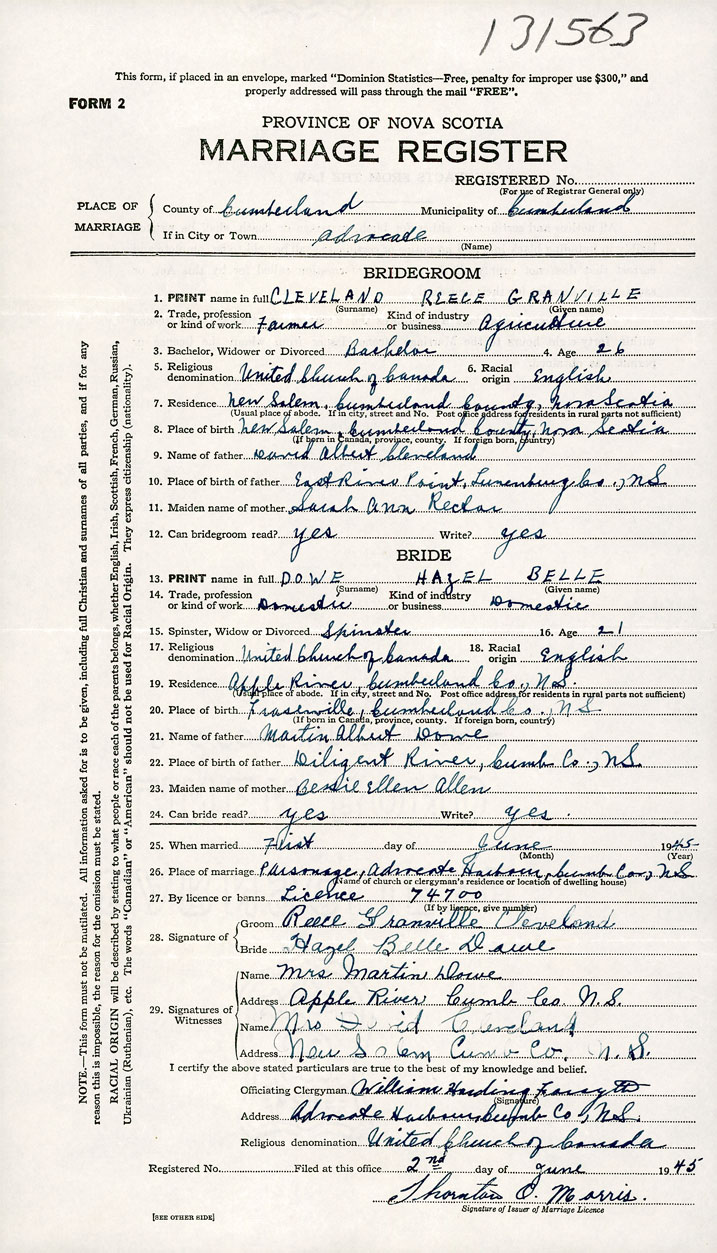 131563
This form, if placed in an envelope, marked "Dominion Statistics—Free, penalty for improper use $300," and
properly addressed will pass through the mail "FREE".
FORM 2
PROVINCE OF NOVA SCOTIA
MARRIAGE REGISTER
REGISTERED No.
(For use of Registrar General only)
PLACE OF MARRIAGE
County of Cumberland Municipality of Cumberland
If in City or Town Advocate
(Name)
BRIDEGROOM
1. PRINT name in full CLEVELAND REECE GRANVILLE
(Surname) (Given name)
2. Trade, profession or kind of work Farmer Kind of industry or business Agriculture
3. Bachelor, Widower or Divorced Bachelor 4. Age 26
5. Religious denomination United Church of Canada 6. Racial origin English
7. Residence New Salem, Cumberland County, Nova Scotia
(Usual place of abode. If in city, street and No. Post office address for residents in rural parts not sufficient)
8. Place of birth New Salem, Cumberland County, Nova Scotia
(If born in Canada, province, county. If foreign born, country)
9. Name of father David Albert Cleveland
10. Place of birth of father East River Point, Lunenburg Co., N.S.
11. Maiden name of mother Sarah Ann Rector
12. Can bridegroom read? yes Write? yes
BRIDE
13. PRINT name in full DOWE HAZEL BELLE
(Surname) (Given name)
14. Trade, profession or kind of work Domestic Kind of industry or business Domestic
15. Spinster, Widow or Divorced Spinster 16. Age 21
17. Religious denomination United Church of Canada 18. Racial origin English
19. Residence Apple River, Cumberland Co., N.S.
(Usual place of abode. If in city, street and No. Post office address for residents in rural parts not sufficient)
20. Place of birth Fraserville, Cumberland Co., N.S.
(If born in Canada, province, county. If foreign born, country)
21. Name of father Martin Albert Dowe
22. Place of birth of father Diligent River, Cumb Co., N.S.
23. Maiden name of mother Bessie Ellen Allen
24. Can bride read? yes Write? yes.
25. When married First day of June 1945
(Month) (Year)
26. Place of marriage Parsonage, Advocate Harbour, Cumb Co., N.S.
(Name of church or clergyman's residence or location of dwelling house)
27. By licence or banns Licence 74700
(If by licence, give number)
28. Signature of
Groom Reece Granville Cleveland
Bride Hazel Belle Dowe
29. Signatures of Witnesses
Name Mrs Martin Dowe
Address Apple River Cumb Co. N.S.
Name Mrs David Cleveland
Address New Salem Cumb Co. N.S.
I certify the above stated particulars are true to the best of my knowledge and belief.
Officiating Clergyman William Harding Forsyth
(Signature)
Address Advocate Harbour, Cumb Co., N.S.
Religious denomination United Church of Canada
Registered No. Filed at this office 2nd day of June 1945
Thornton O. Morris.
Signature of Issuer of Marriage Licence
[SEE OTHER SIDE]
NOTE.—This form must not be mutilated. All information asked for is to be given, including full Christian and surnames of all parties, and if for any
reason this is impossible, the reason for the omission must be stated.
RACIAL ORIGIN will be described by stating to what people or race each of the parents belongs, whether English, Irish, Scottish, French, German, Russian,
Ukrainian (Ruthenian), etc. The words "Canadian" or "American" should not be used for Racial Origin. They express citizenship (nationality).